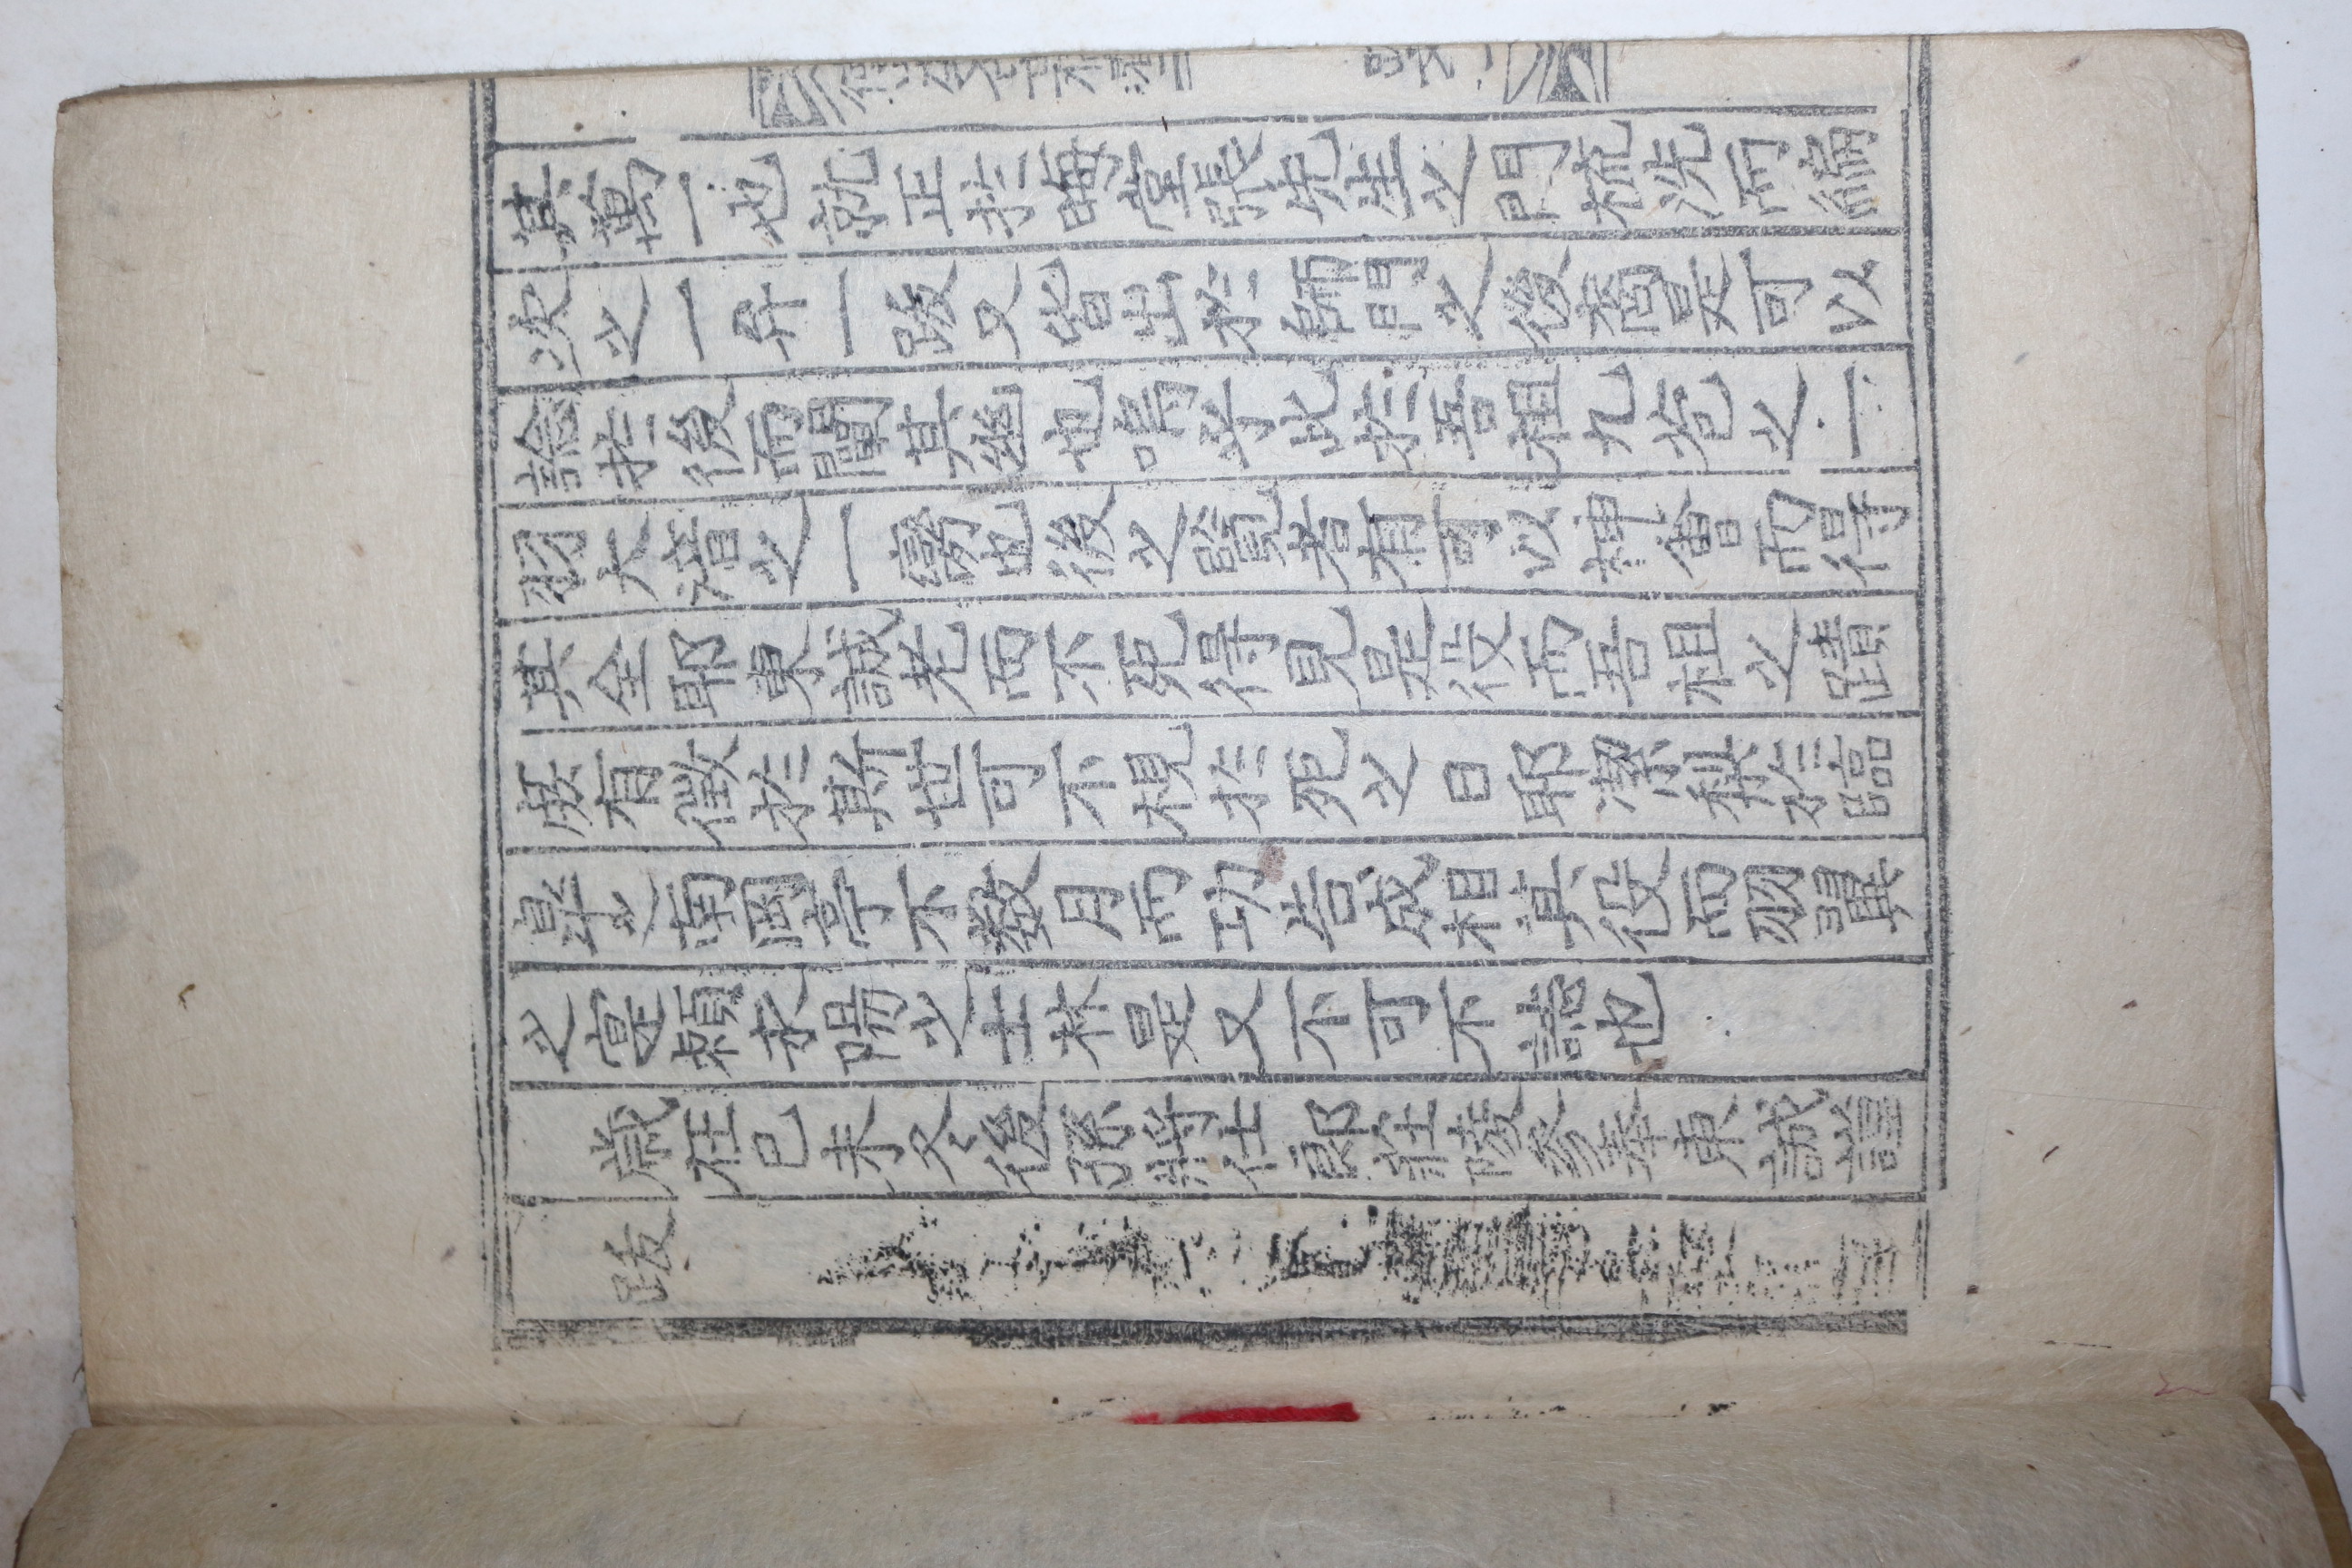 其萬一也就正於晦堂張先生之門梳洗而編
次之一弁一跋又皆出於師門之後裔是可以
諗於後而闡其幽也嗚乎此於吾祖九苞之一
羽大濩之一臠也後之覽者有可以神會而得
其全耶東誠老而不死得見是役而吾祖之蹟
庶有徵於斯世可不視於死之日耶潔梨於臨
皐之南岡亭不數月而功告成相其役而羽翼
之寔賴永陽之士林是又不可不誌也
歲在己未冬後孫將仕郎莊陵參奉東誠謹
跋